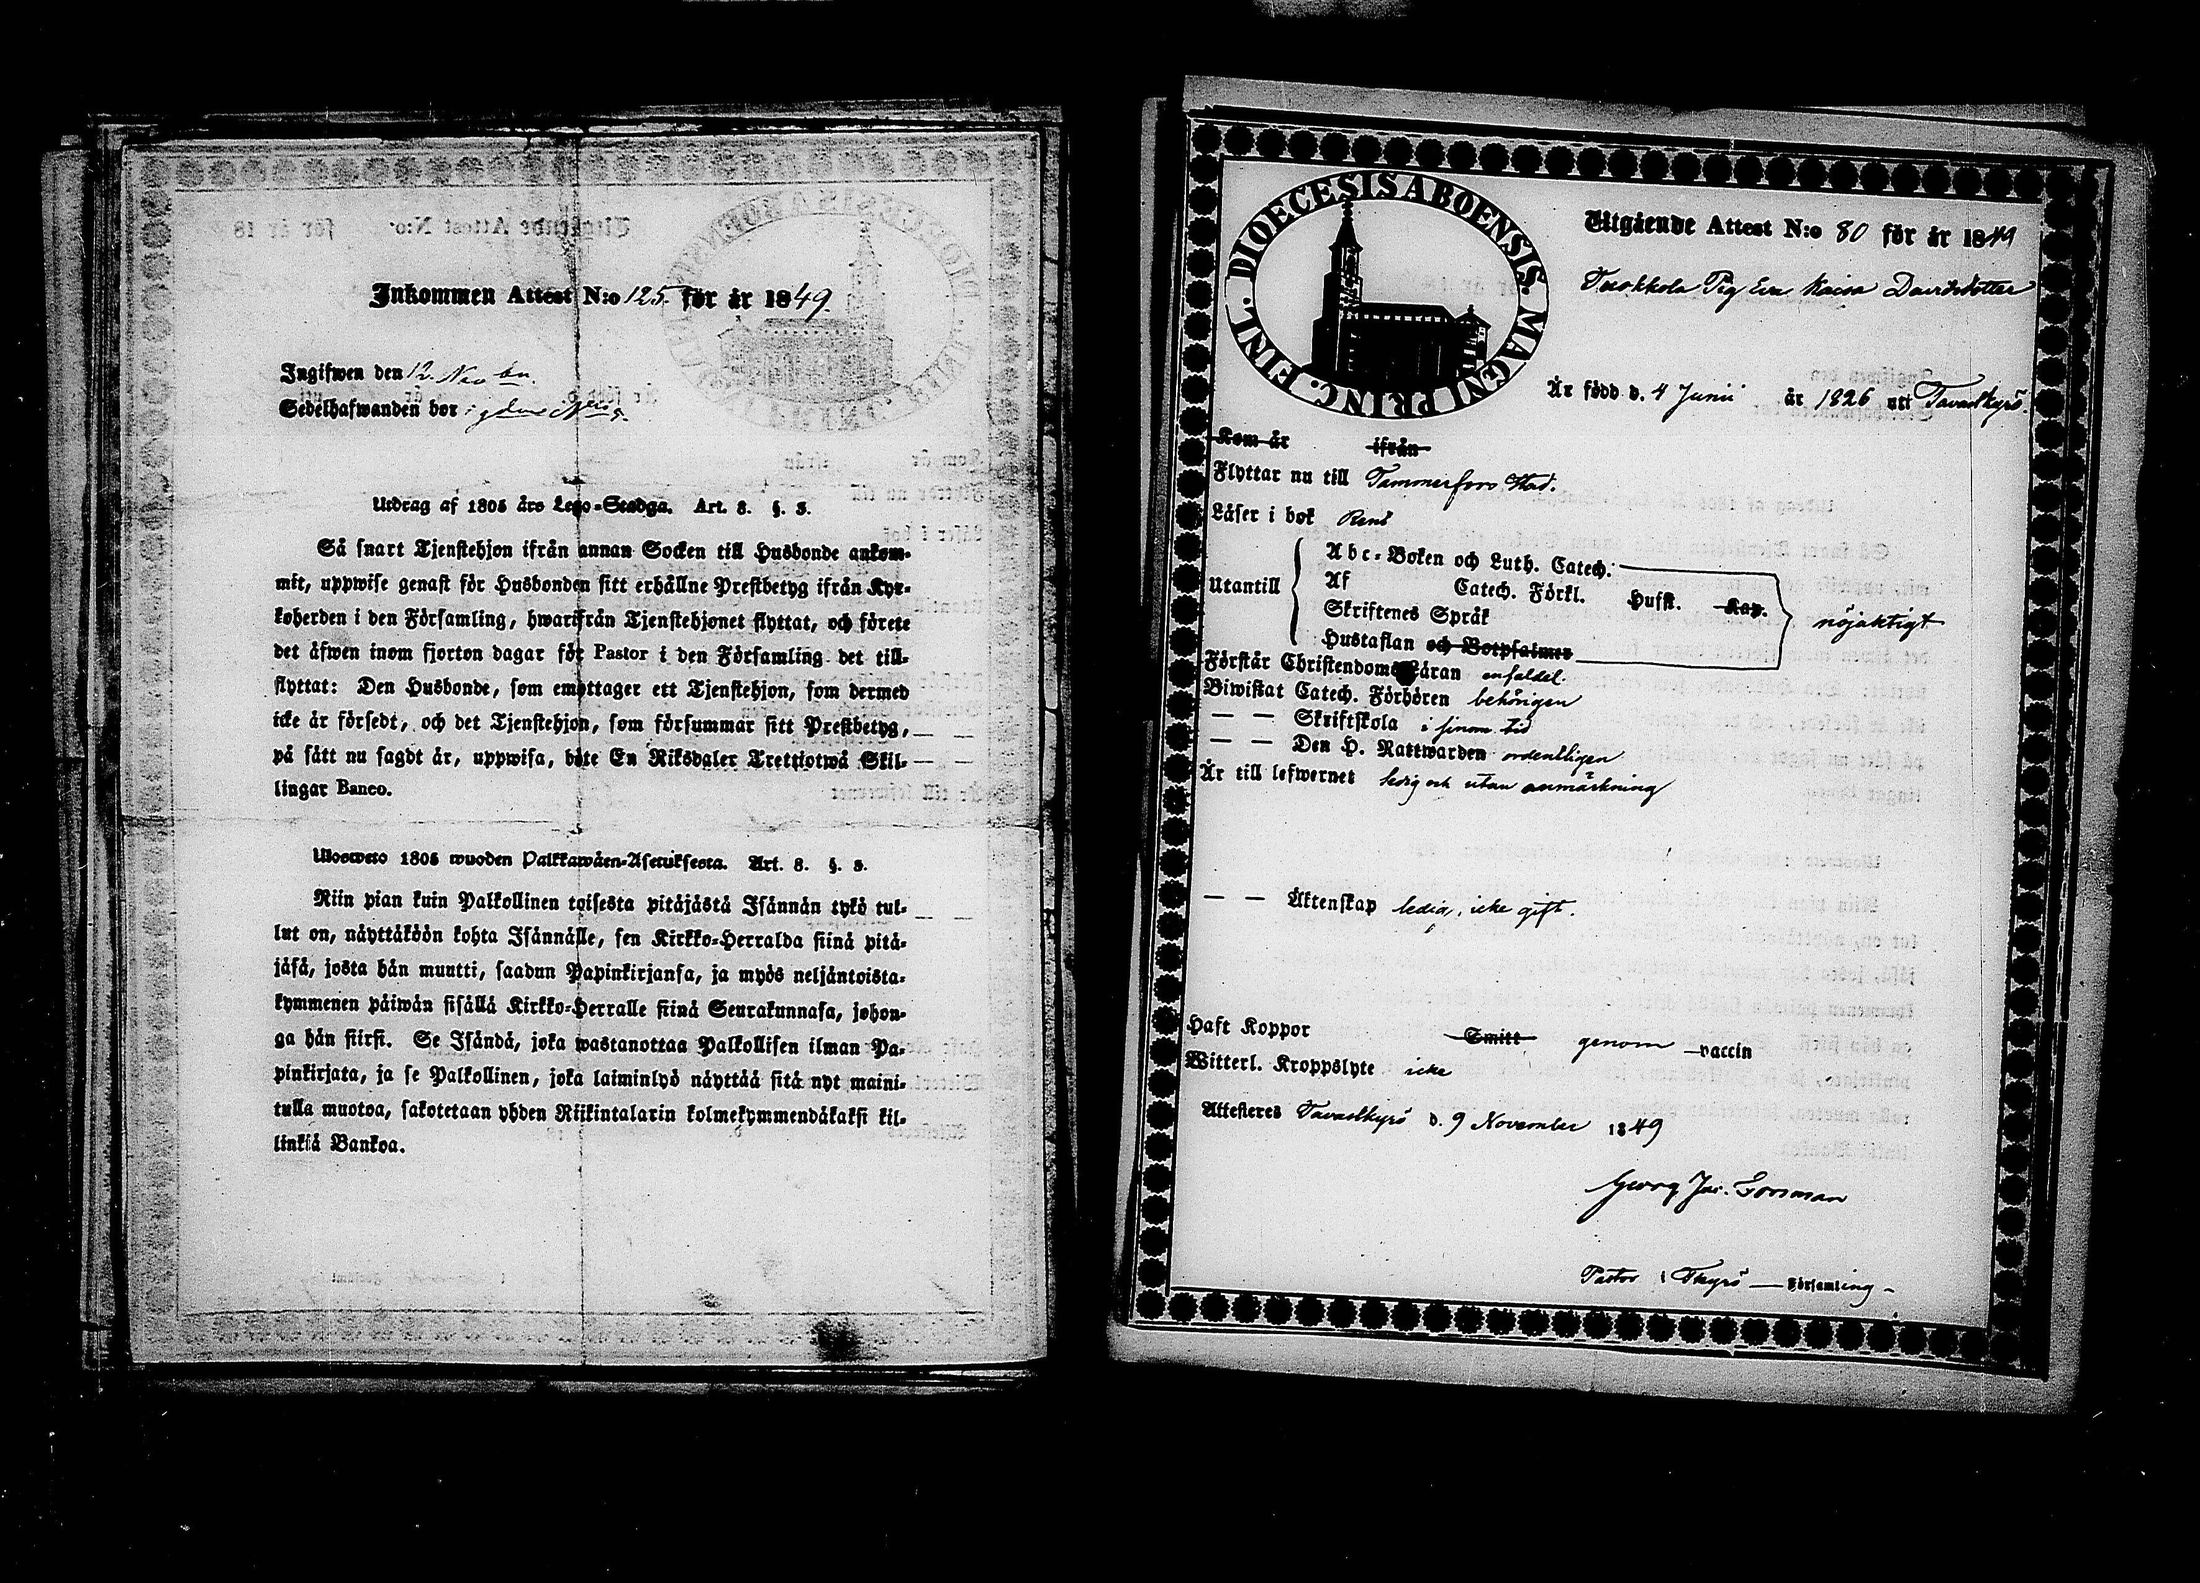 Inkommen Attest N:o 125. för år 1849.
Ingifwen den 12. Novbr.
Sedelhafwanden bor i
Utdrag af 1805 års Lego-Stadga. Art. 8. §. 3.
Så snart Tjenstehjon ifrån annan Socken till Husbonde ankom-
mit, uppwise genast för Husbonden sitt erhållne Prestbetyg ifrån Kyr-
koherden i den Församling, hwarifrån Tjenstehjonet flyttat, och förete
det äfwen inom fjorton dagar för Pastor i den Församling det till-
flyttat: Den Husbonde, som emottager ett Tjenstehjon, som dermed
icke är försedt, och det Tjenstehjon, som försummar sitt Prestbetyg,
på sätt nu sagdt är, uppwisa, böte En Riksdaler Trettiotwå Skil-
lingar Banco.
Ulosweto 1805 wuoden Palkkawäen-Asetuksesta. Art. 8. §. 3.
Niin pian kuin Palkollinen toisesta pitäjästä Isännän tykö tul-
lut on, näyttäköön kohta Isännälle, sen Kirkko-Herralda siinä pitä-
jäsä, josta hän muutti, saadun Papinkirjansa, ja myös neljäntoista-
kymmenen päiwän sisällä Kirkko-Herralle siinä Seurakunnasa, johon-
ga hän siirsi. Se Isändä, joka wastanottaa Palkollisen ilman Pa-
pinkirjata, ja se Palkollinen, joka laiminlyö näyttää sitä nyt maini-
tulla muotoa, sakotetaan yhden Riikintalarin kolmekymmendäkaksi kil-
linkiä Bankoa.
DIOECESIS ABOENSIS. MAGNI PRINC. FINL.
Utgående Attest N:o 80 för år 1849
Pig Eva Kaisa Davidsdotter
Är född d. 4 Junii år 1826 uti Tavastkyrö.
Kom år ifrån
Flyttar nu till Tammerfors Stad.
Läser i bok Rent
Utantill
Abc-Boken och Luth. Catech.
Af Catech. Förkl. Hufst. Kap.
Skriftenes Språk
Hustaflan och Botpsalmer
nöjaktigt
Förstår Christendoms Läran enfaldel.
Biwistat Catech. Förhören behörigen
— — Skriftskola i sinom tid
— — Den H. Nattwarden ordentligen
Är till lefwernet ledig och utan anmärkning
— — Äktenskap ledig, icke gift.
Haft Koppor Smitt genom vaccin
Witterl. Kroppslyte icke
Attesteres Tavastkyrö d. 9 November 1849
Georg Jac. Forsman
Pastor i Tkyrö Församling